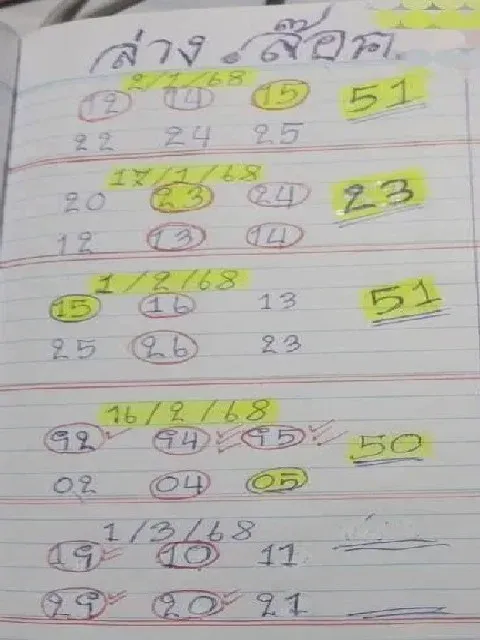 ล่าง ล๊อค
2/1/68
12 14 15 51
22 24 25
17/1/68
20 23 24 23
12 13 14
1/2/68
15 16 13 51
25 26 23
16/2/68
92 94 95 50
02 04 05
1/3/68
19 10 11
29 20 21